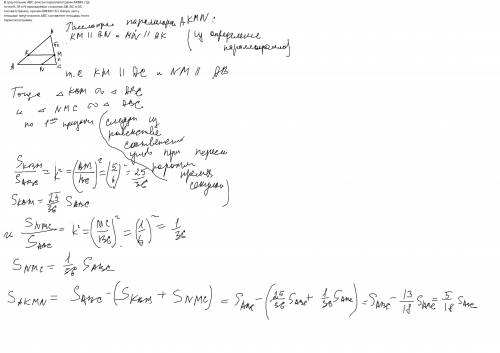 В треугольник ABC вписан параллелограмм AKMN, где
точки K, M и N принадлежат сторонам AB, BC и AC
соответственно, причём BM:MC=5:1. Какую часть
площади треугольника ABC составляет площадь этого
параллелограмма
Рассмотрим параллелограм AKMN:
KM || AN и MN || AK (из определения параллелограмма)
т.е KM || AC и NM || AB
Тогда △ KBM ∞ △ ABC
и △ NMC ∞ △ ABC
по 1ому признаку (следует из
равенства
углов при
парал
секущей)
S_KBM / S_ABC = k² = (BM/BC)² = (5/6)² = 25/36
S_KBM = 25/36 S_ABC
и S_NMC / S_ABC = k² = (MC/BC)² = (1/6)² = 1/36
S_NMC = 1/36 S_ABC
S_AKMN = S_ABC - (S_KBM + S_NMC) = S_ABC - (25/36 S_ABC + 1/36 S_ABC) = S_ABC - 13/18 S_ABC = 5/18 S_ABC